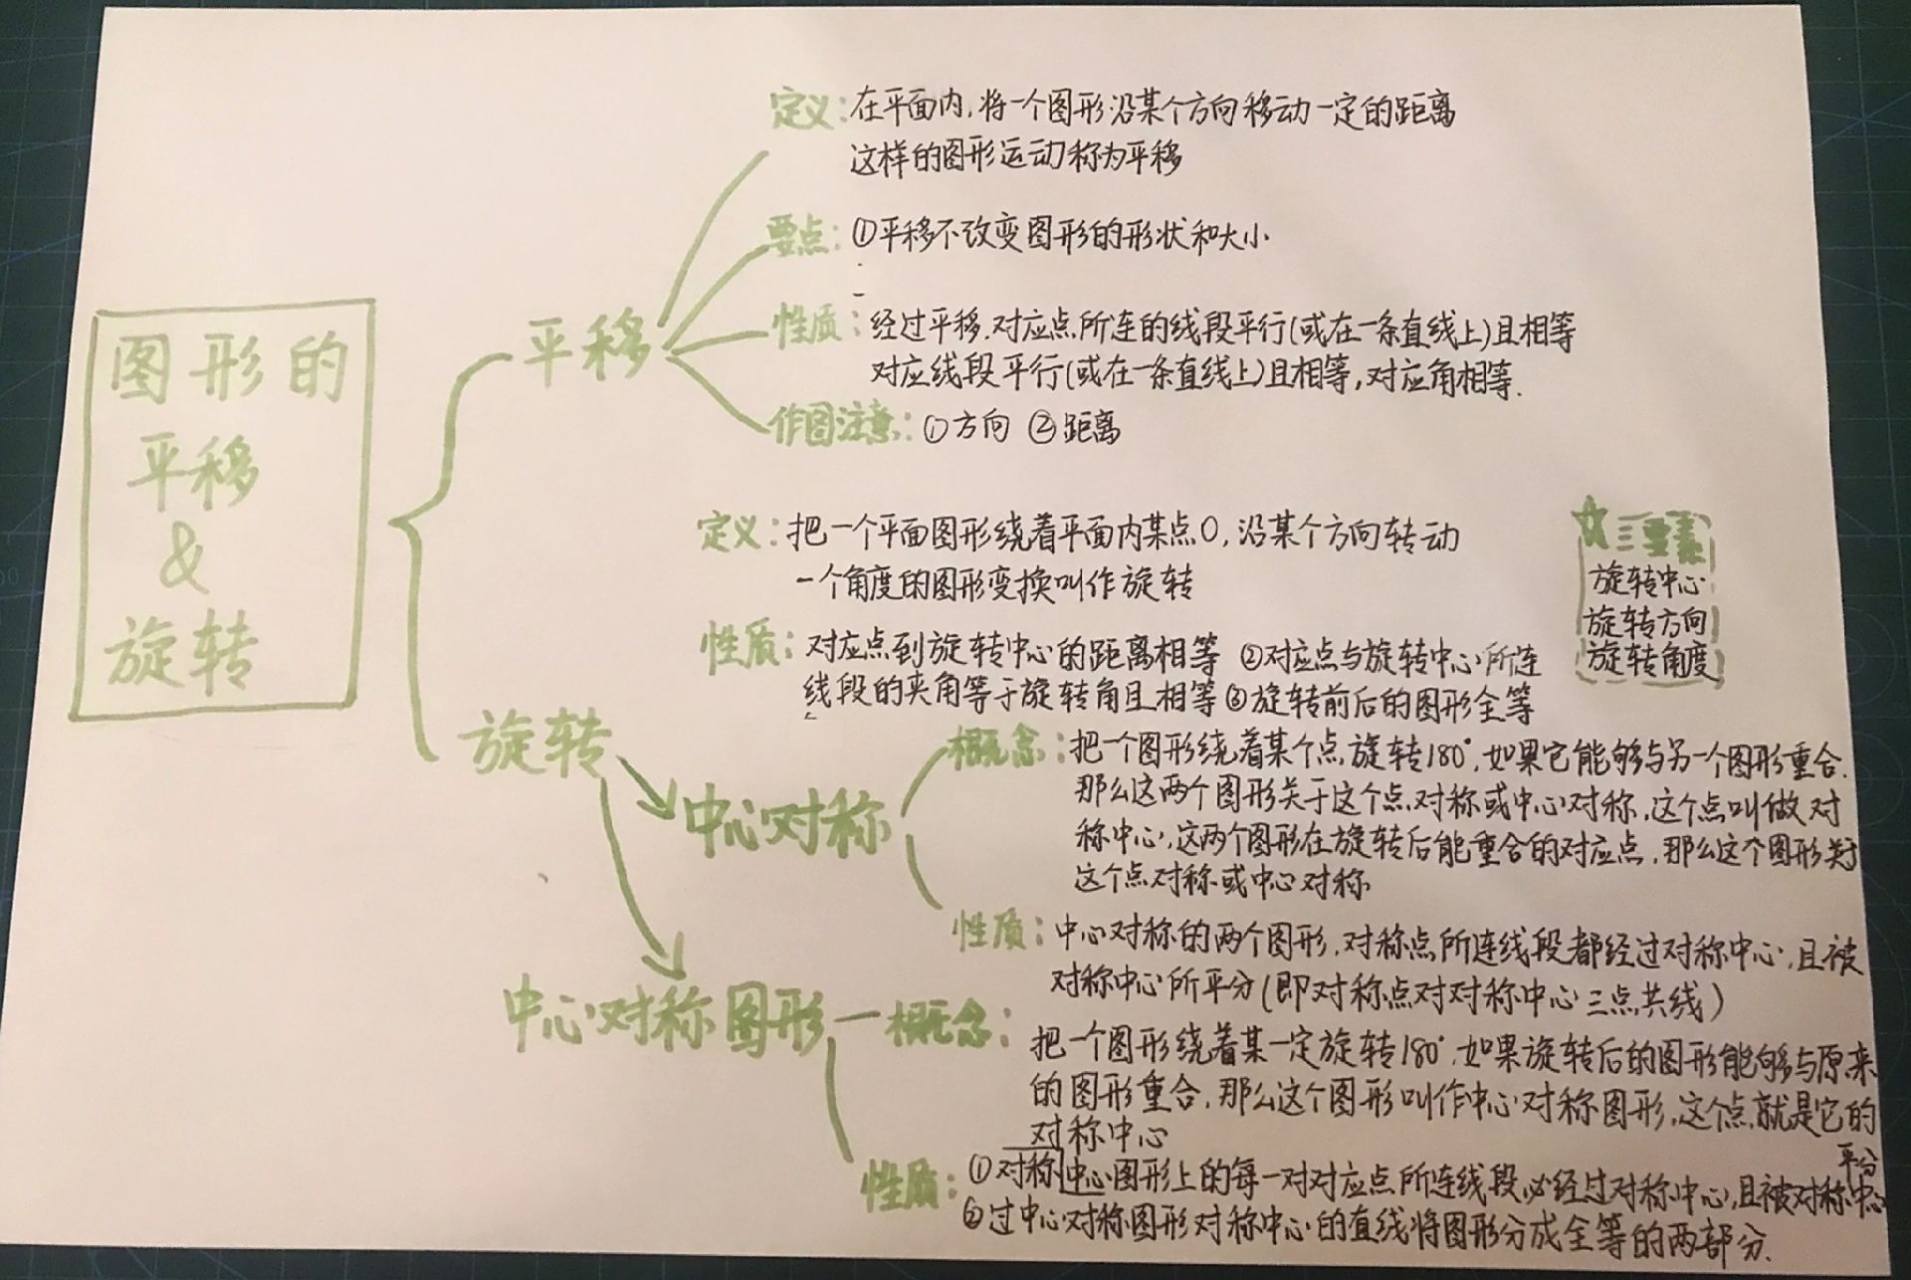 图形的
平移
&
旋转
平移
定义：在平面内,将一个图形沿某个方向移动一定的距离
这样的图形运动称为平移
要点：①平移不改变图形的形状和大小
性质：经过平移.对应点所连的线段平行(或在一条直线上)且相等
对应线段平行(或在一条直线上)且相等,对应角相等.
作图注意：①方向 ②距离
旋转
定义：把一个平面图形绕着平面内某点O,沿某个方向转动
一个角度的图形变换叫作旋转
☆三要素
旋转中心
旋转方向
旋转角度
性质：对应点到旋转中心的距离相等 ②对应点与旋转中心所连
线段的夹角等于旋转角且相等③旋转前后的图形全等
中心对称
概念：把一个图形绕着某个点旋转180°,如果它能够与另一个图形重合.
那么这两个图形关于这个点对称或中心对称,这个点叫做对
称中心,这两个图形在旋转后能重合的对应点,那么这个图形关于
这个点对称或中心对称
性质：中心对称的两个图形,对称点所连线段都经过对称中心,且被
对称中心所平分(即对称点对对称中心三点共线)
中心对称图形
概念：把一个图形绕着某一定旋转180°,如果旋转后的图形能够与原来
的图形重合,那么这个图形叫作中心对称图形,这个点就是它的
对称中心
性质：①对称中心图形上的每一对对应点所连线段必经过对称中心,且被对称中心
平分
②过中心对称图形对称中心的直线将图形分成全等的两部分.